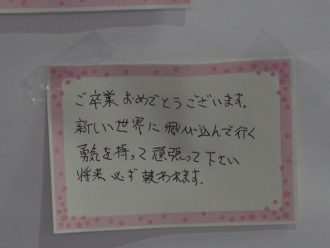 ご卒業おめでとうございます。
新しい世界に飛び込んで行く
勇気を持って頑張って下さい
将来必ず報われます。